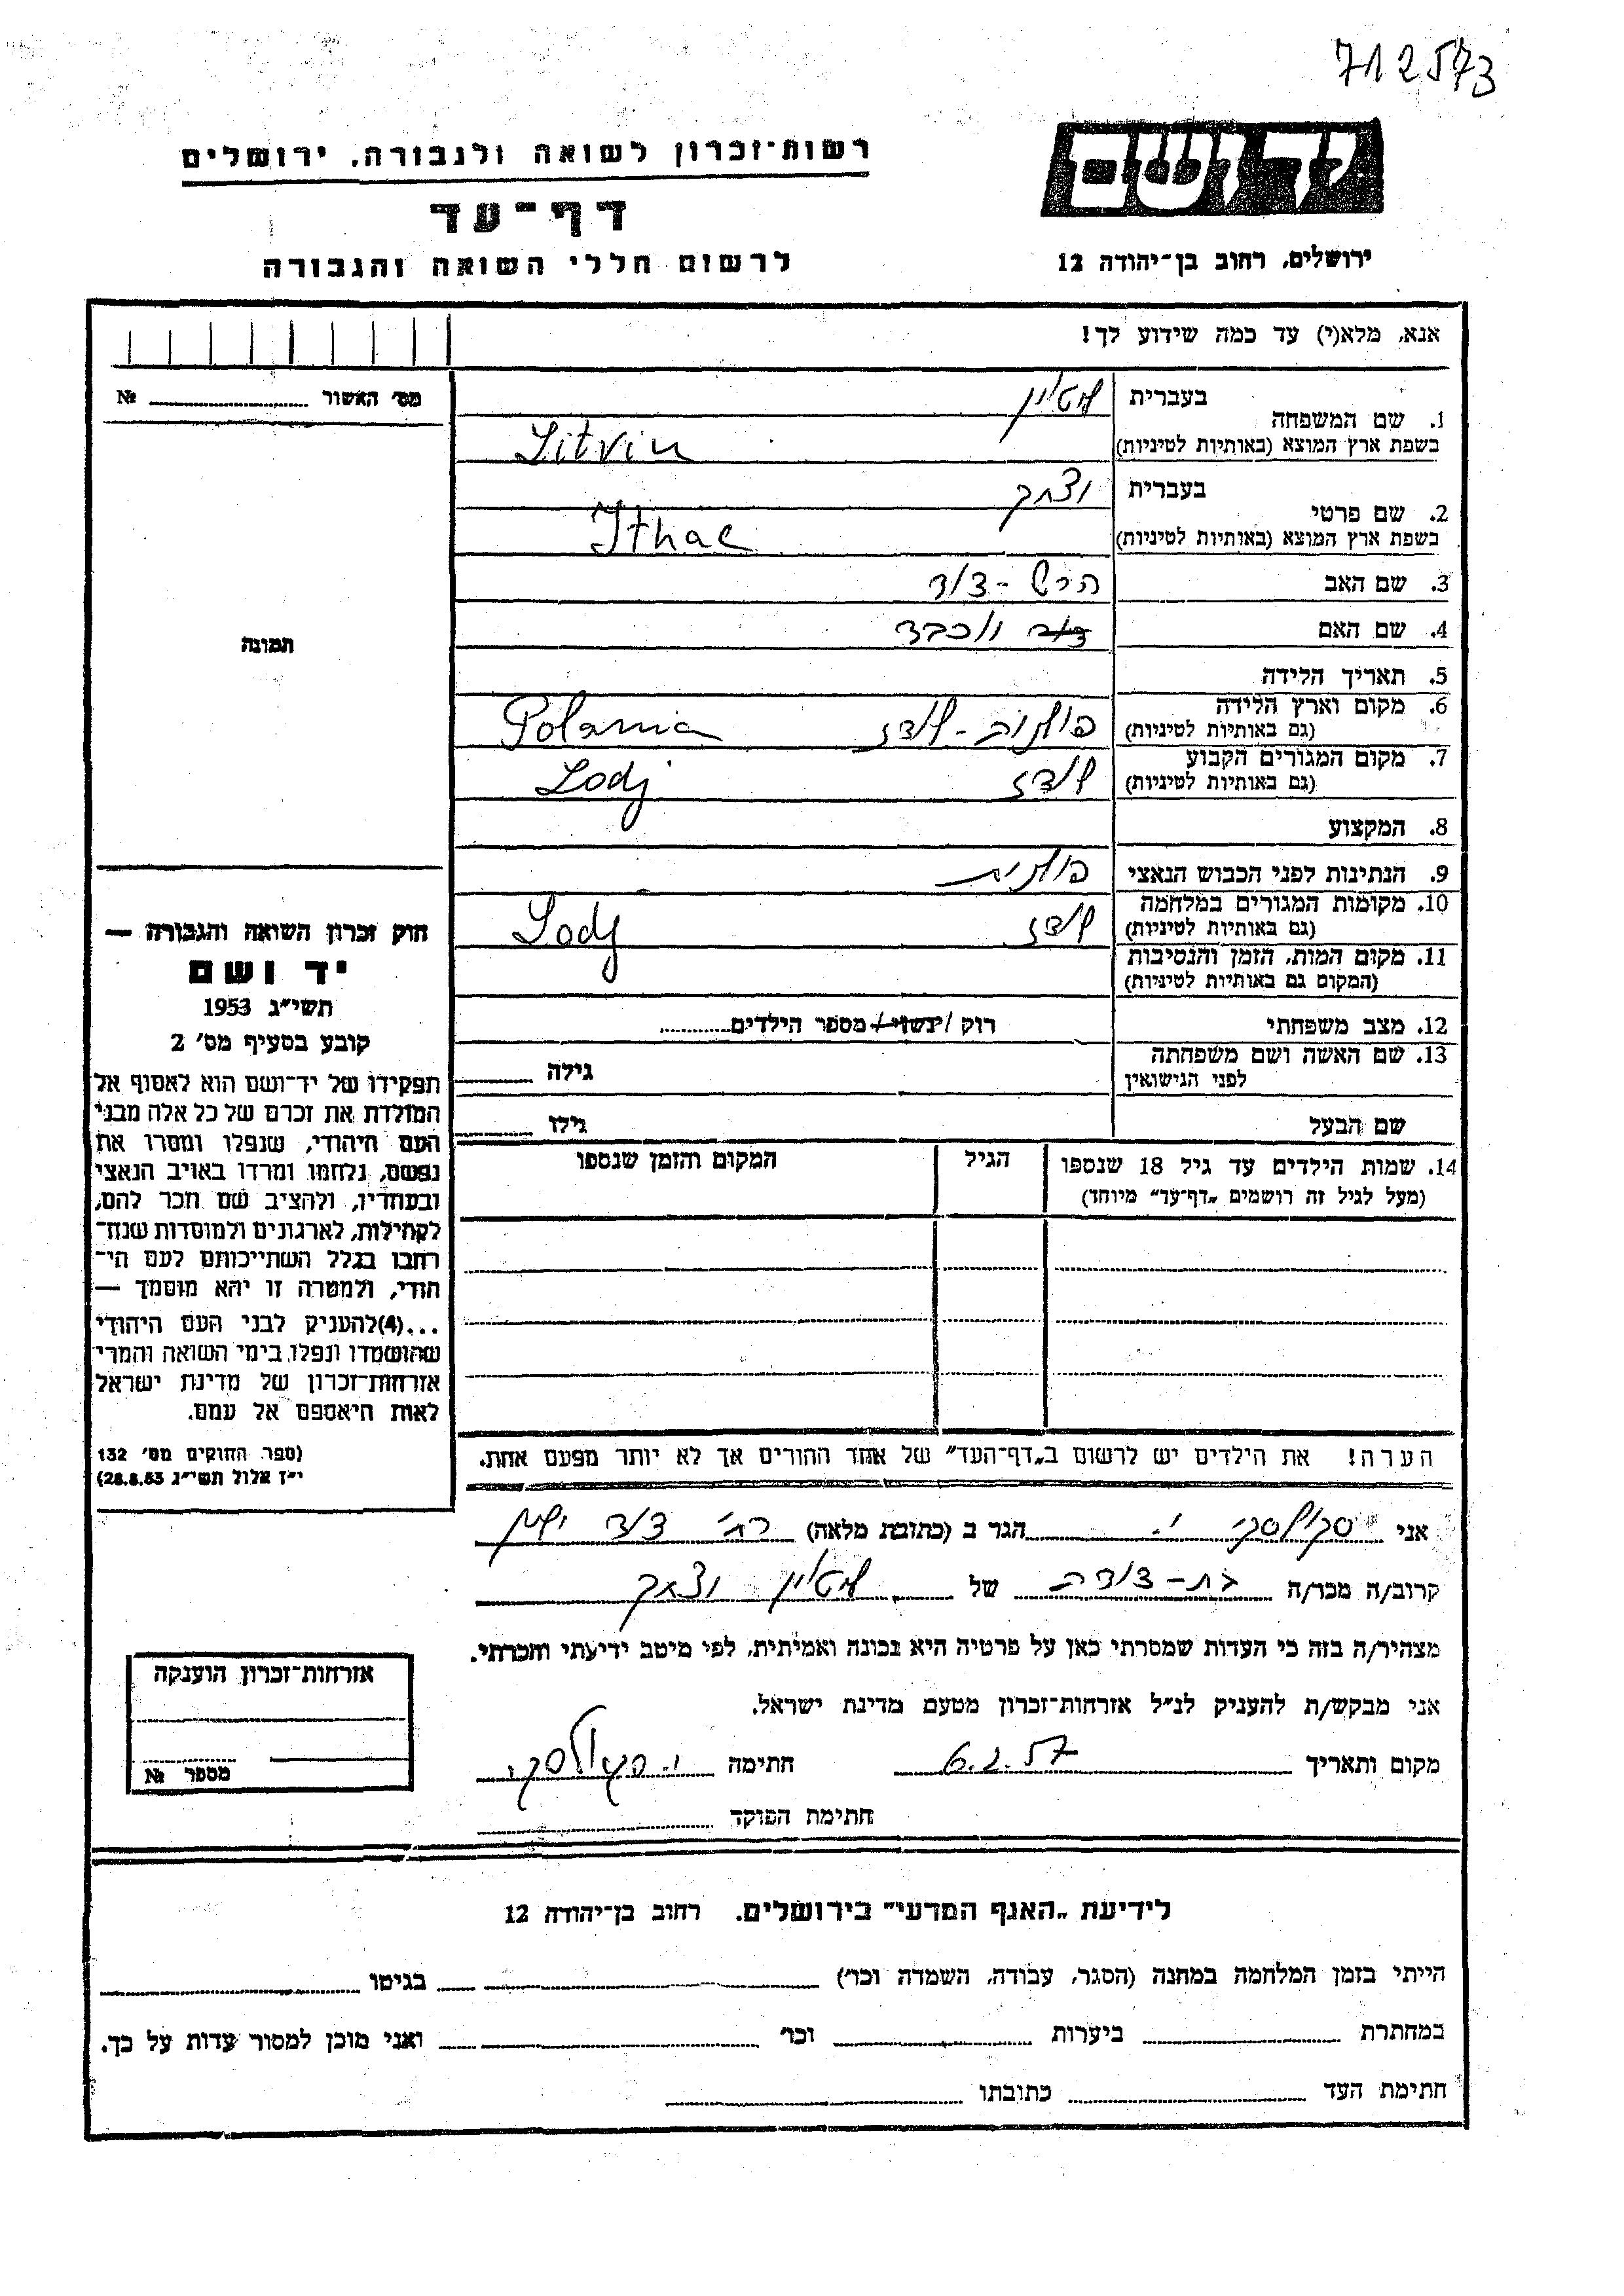 712573
יד ושם
רשות־זכרון לשואה ולגבורה, ירושלים
דף־עד
לרשום חללי השואה והגבורה
ירושלים, רחוב בן־יהודה 12
אנא, מלא(י) עד כמה שידוע לך!
מס' האשור № 
1. שם המשפחה
בעברית ליטוין
בשפת ארץ המוצא (באותיות לטיניות) Litvin
2. שם פרטי
בעברית יצחק
בשפת ארץ המוצא (באותיות לטיניות) Ithac
3. שם האב הרש - דוד
4. שם האם יוכבד
5. תאריך הלידה
6. מקום וארץ הלידה
(גם באותיות לטיניות) פולניה - לודז Polania
7. מקום המגורים הקבוע
(גם באותיות לטיניות) לודז Lodj
8. המקצוע
9. הנתינות לפני הכבוש הנאצי פולנית
10. מקומות המגורים במלחמה
(גם באותיות לטיניות) לודז Lodj
11. מקום המות, הזמן והנסיבות
(המקום גם באותיות לטיניות)
12. מצב משפחתי רוק / נשוי / מספר הילדים
13. שם האשה ושם משפחתה
לפני הנישואין גילה
שם הבעל גילו
14. שמות הילדים עד גיל 18 שנספו הגיל המקום והזמן שנספו
(מעל לגיל זה רושמים „דף־עד” מיוחד)
תמונה
חוק זכרון השואה והגבורה —
יד ושם
תשי"ג 1953
קובע בסעיף מס' 2
תפקידו של יד־ושם הוא לאסוף אל
המולדת את זכרם של כל אלה מבני
העם היהודי, שנפלו ומסרו את
נפשם, נלחמו ומרדו באויב הנאצי
ובעוזריו, ולהציב שם וזכר להם,
לקהילות, לארגונים ולמוסדות שנח־
רבו בגלל השתייכותם לעם הי־
הודי, ולמטרה זו יהא מוסמך —
...(4)להעניק לבני העם היהודי
שהושמדו ונפלו בימי השואה והמרי
אזרחות־זכרון של מדינת ישראל
לאות היאספם אל עמם.
(ספר החוקים מס' 132
י"ז אלול תשי"ג 28.8.53)
הערה! את הילדים יש לרשום ב„דף־העד” של אחד ההורים אך לא יותר מפעם אחת.
אני סקולסקי י. הגר ב (כתובת מלאה)
קרוב/ה מכר/ה בת-דודה של ליטוין יצחק
מצהיר/ה בזה כי העדות שמסרתי כאן על פרטיה היא נכונה ואמיתית, לפי מיטב ידיעתי והכרתי.
אני מבקש/ת להעניק לנ"ל אזרחות־זכרון מטעם מדינת ישראל.
מקום ותאריך 6.2.57 חתימה י. סקולסקי
חתימת הפוקד
אזרחות־זכרון הוענקה
מספר №
לידיעת „האגף המדעי” בירושלים. רחוב בן־יהודה 12
הייתי בזמן המלחמה במחנה (הסגר, עבודה, השמדה וכו') בגיטו
במחתרת ביערות וכו' ואני מוכן למסור עדות על כך.
חתימת העד כתובתו